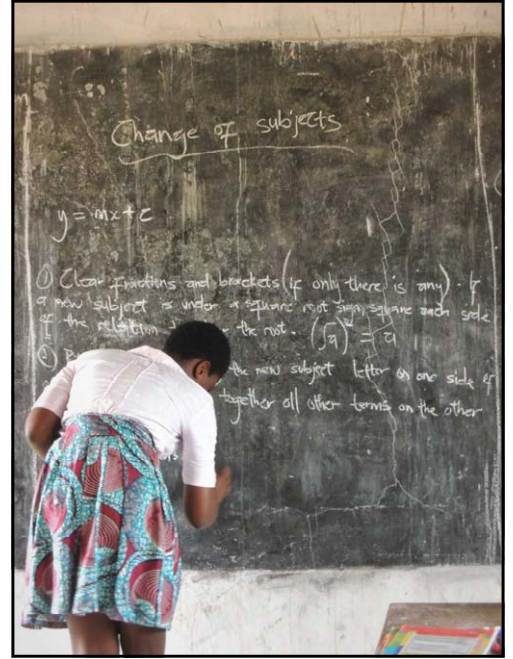 Change of subjects
y = mx + c
① Clear fractions and brackets (if only there is any). If
a new subject is under a square root sign, square each side
of the relation the root. (√a)² = a
② the new subject letter on one side of
together all other terms on the other